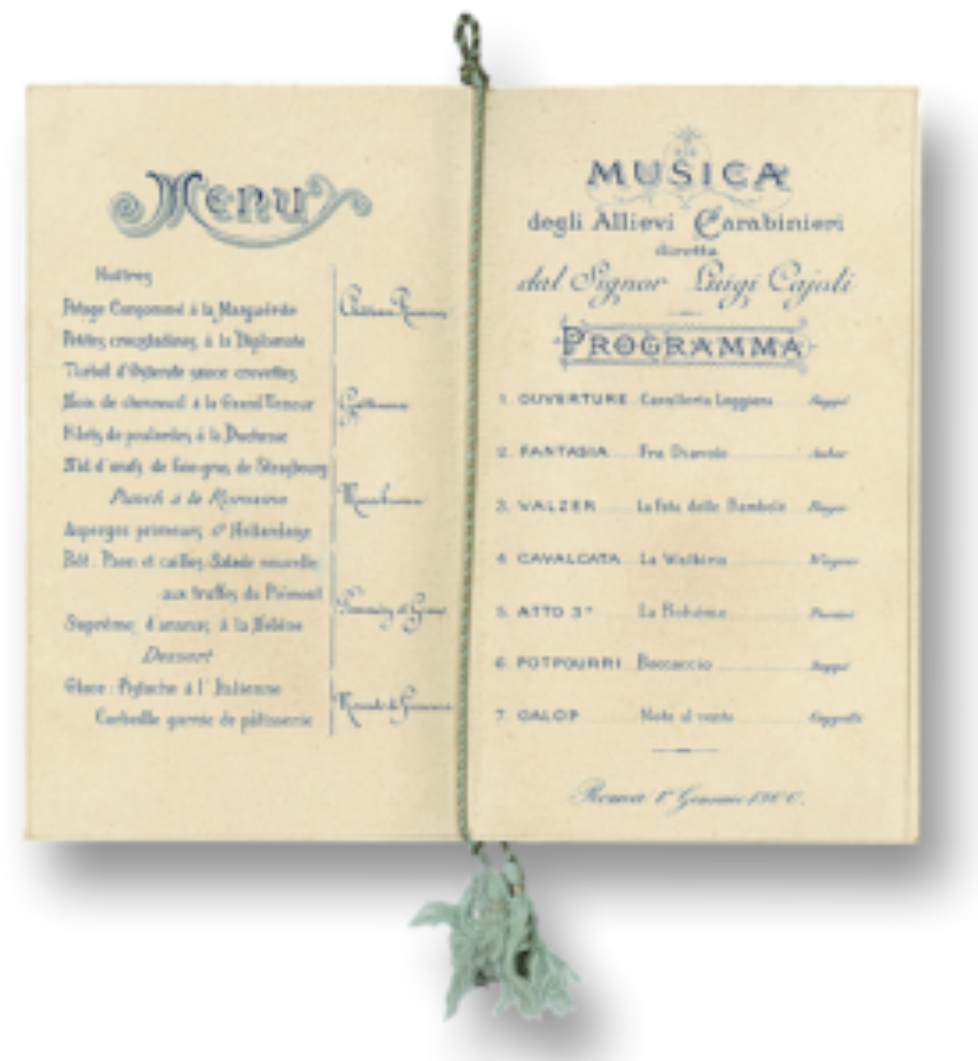 Menu
Huîtres
Potage Consommé à la Marguérite
Petites croustadines à la Diplomate
Turbot d'Ostende sauce crevettes
Noix de chevreuil à la Grand Veneur
Filets de poulardes à la Duchesse
de foie-gras de Strasbourg
Punch à la Romaine
Asperges primeurs Hollandaise
Rôt: Paon et cailles Salade nouvelle
aux truffes du Piémont
Suprême d'ananas à la Hélène
Dessert
Glace: Pistache à l'Italienne
Corbeille garnie de pâtisserie
MUSICA
degli Allievi Carabinieri
diretta
dal Signor Luigi Cajoli
PROGRAMMA
1. OUVERTURE Cavalleria Leggiera Suppé
2. FANTASIA Fra Diavolo Auber
3. VALZER La Fata delle Bambole
4. CAVALCATA La Walkiria Wagner
5. ATTO 3° La Bohème Puccini
6. POTPOURRI Boccaccio Suppé
7. GALOP Note al vento
Roma 1° Gennaio 1900.